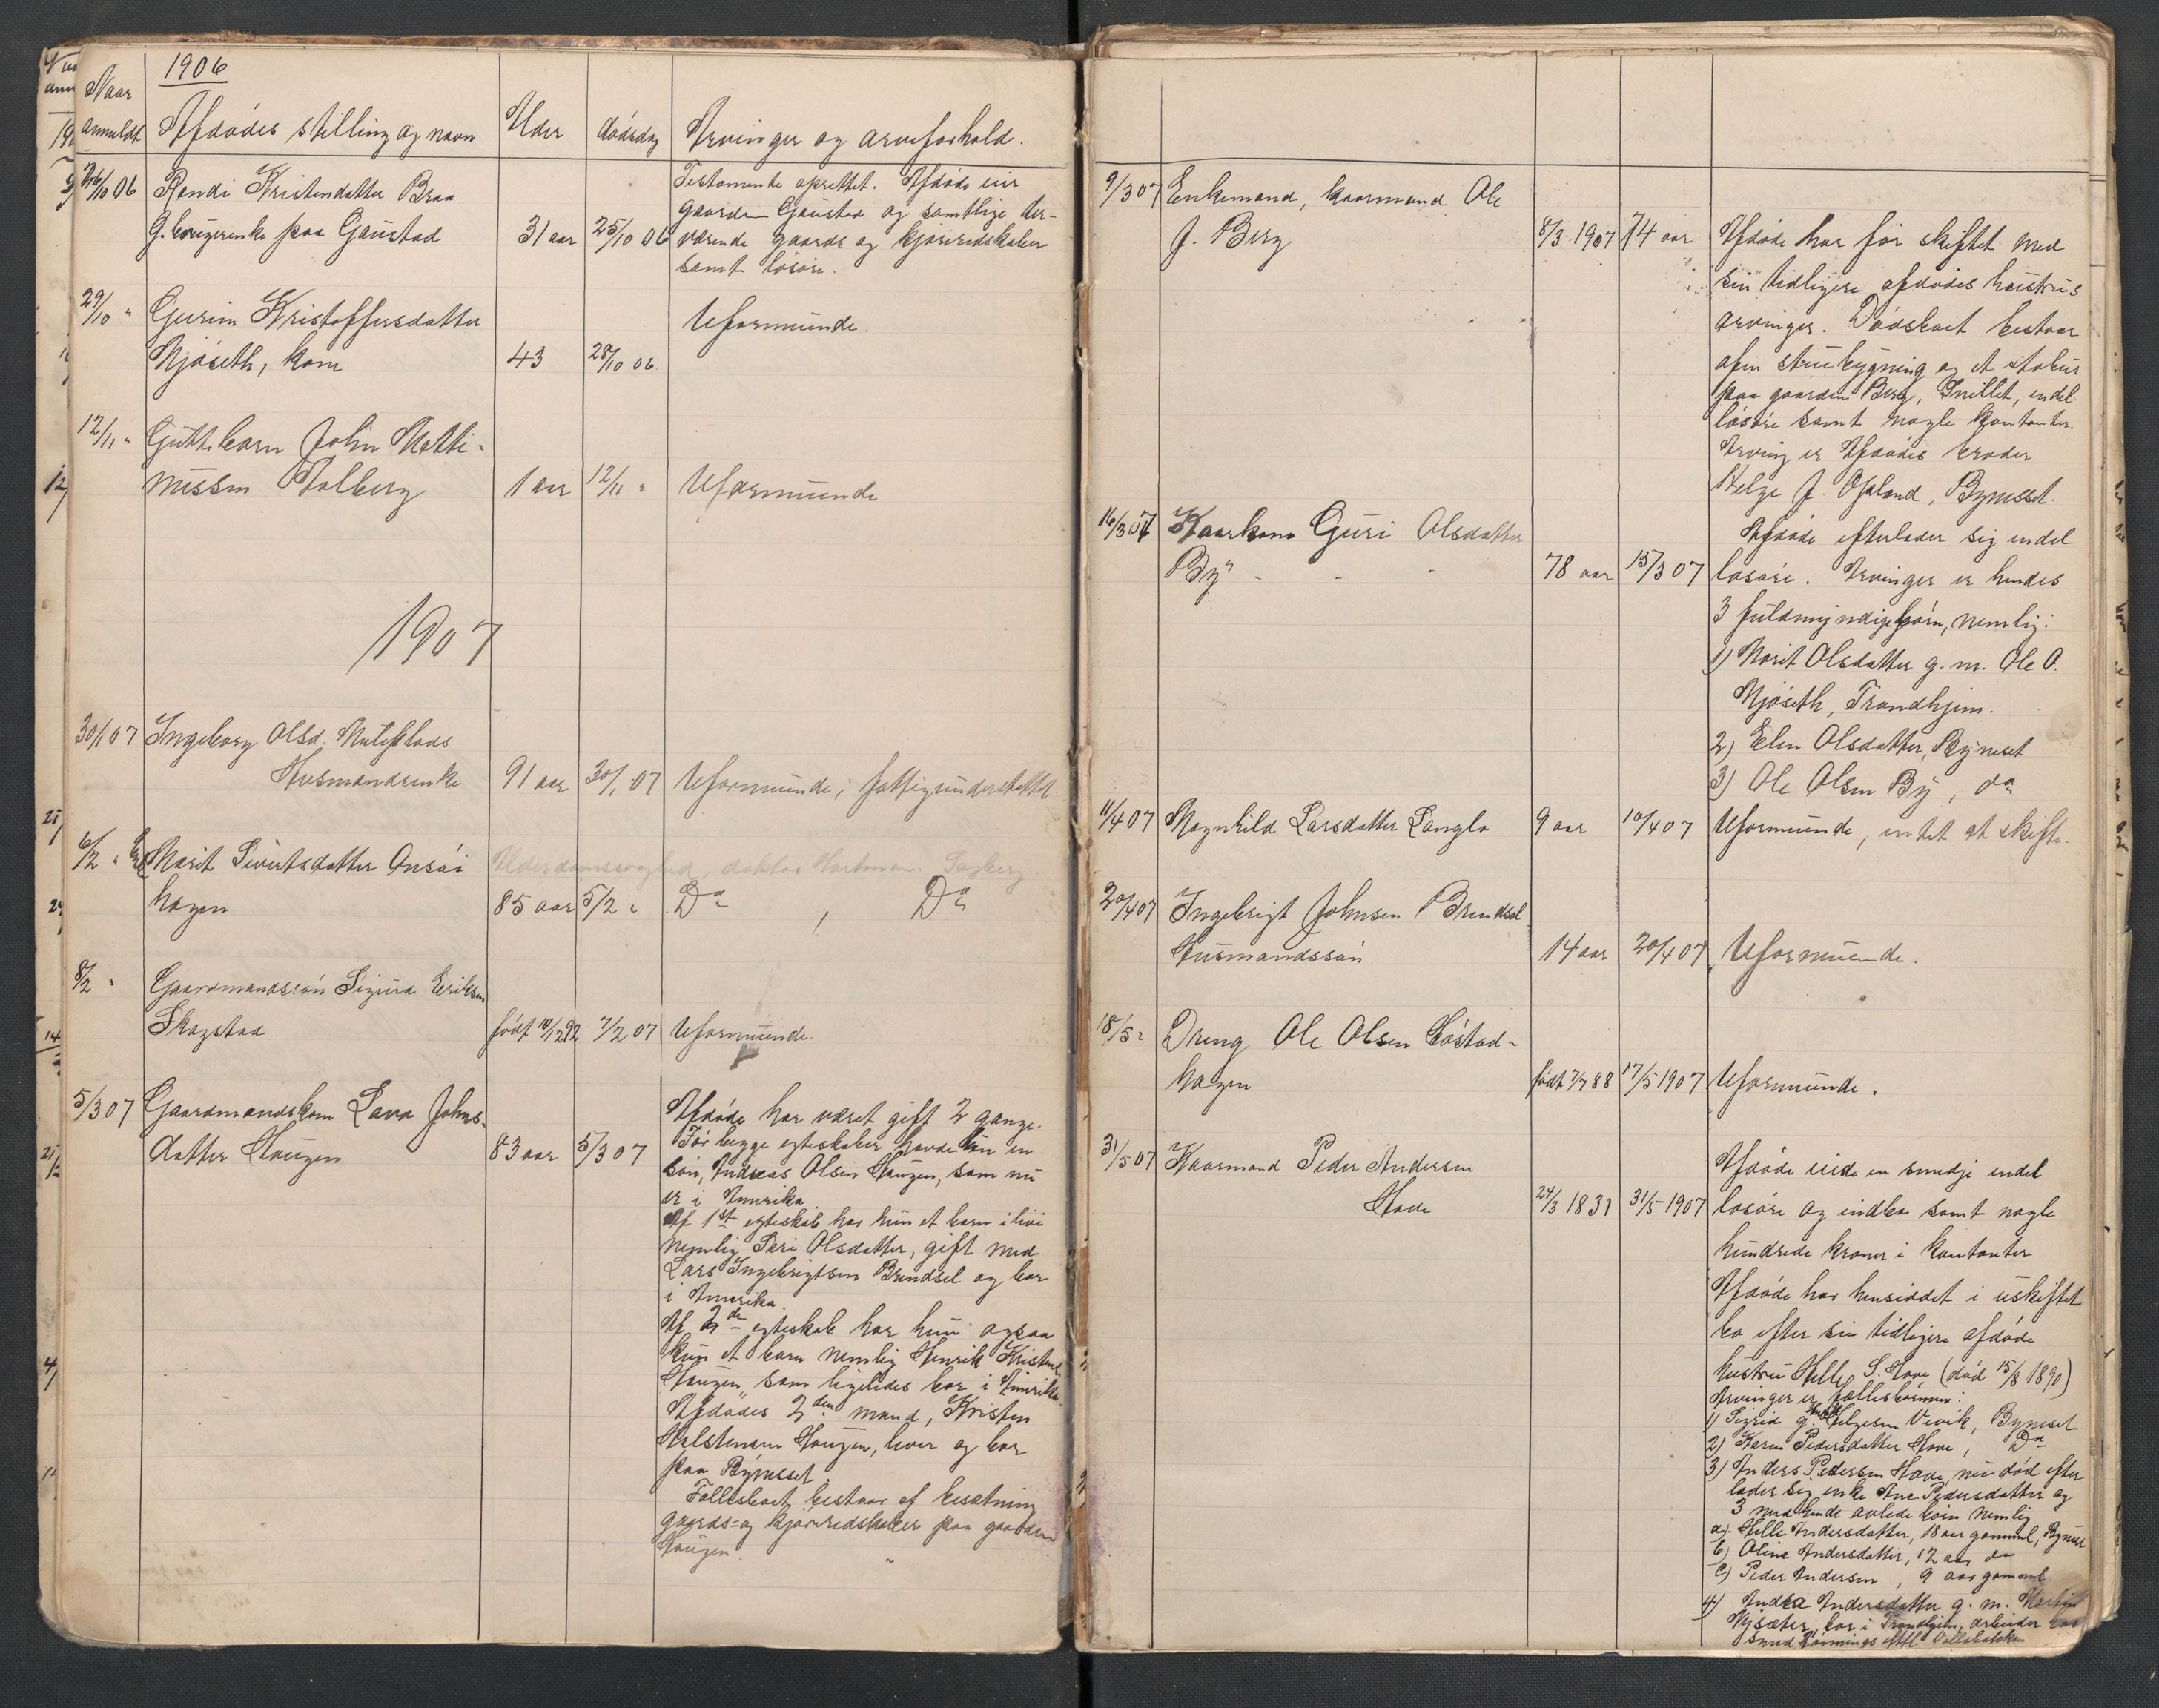 1906
Naar
anmeldt Afdødes stilling og navn Alder dødsdag Arvinger og arveforhold.
26/10 06 Randi Kristensdatter Braa
g.brugerenke paa Gaustad 31 aar 25/10 06
Testamente oprettet. Afdøde eier
gaarden Gaustad og samtlige der-
værende gaards og kjøreredskaber
samt løsøre.
29/10 " Gurine Kristoffersdatter
Mjøseth, kone 43 28/10 06
Uformuende.
12/11 " Guttebarn John Matti-
nussen Stolberg 1 aar 12/11 " Uformuende
1907
30/1 07 Ingeborg Olsd.
Husmandsenke 91 aar 30/1 07 Uformuende; fattigunderstøttet
6/2 " Marit Sivertsdatter Onsøi
Alderdomssvaghed, doktor Hartman.
hagen 85 aar 5/2 " Do , Do
8/2 " Gaardmandssøn Sigurd Eriksen
Skogstad født 10/12 92 7/2 07 Uformuende.
5/3 07 Gaardmandskone Lava Johns-
datter Haugen 83 aar 5/3 07
Afdøde har været gift 2 gange.
Før begge egteskaber havde hun en
søn, Andreas Olsen Haugen, som nu
er i Amerika
Af 1ste egteskab har hun et barn i live
nemlig Seri Olsdatter, gift med
Lars Ingebrigtsen Brendsel og bor
i Amerika.
Af 2de egteskab har hun ogsaa
kun et barn nemlig Henrik Kristens
Haugen, som ligeledes bor i Amerika.
Afdødes 2den mand, Kristen
Halstensen Haugen, lever og bor
paa Bynesset.
Fællesboet bestaar af besætning
gaards- og kjøreredskaber paa gaarden
Haugen.
9/3 07 Enkemand, kaarmand Ole
J. Berg 8/3 1907 74 aar
Afdøde har før skiftet med
sin tidligere afdødes hustrus
arvinger. Dødsboet bestaar
af en stuebygning og et stabur
paa gaarden Berg, Snillet, endel
løsøre samt nogle kontanter.
Arving er Afdødes broder
Helge J. Opland, Bynesset.
16/3 07 Kaarkone Guri Olsdatter
By 78 aar 15/3 07
Afdøde efterlader sig endel
løsøre. Arvinger er hendes
3 fuldmyndige børn, nemlig:
1) Marit Olsdatter g. m. Ole O.
Mjøseth, Trondhjem.
2) Elen Olsdatter, Byneset
3) Ole Olsen By, do
11/4 07 Magnhild Larsdatter Langlo 9 aar 10/4 07 Uformuende, intet at skifte.
20/4 07 Ingebrigt Johnsen Brendsel
Husmandssøn 14 aar 20/4 07 Uformuende.
18/5 " Dreng Ole Olsen Høstad-
hagen født 7/7 88 17/5 1907 Uformuende.
31/5 07 Kaarmand Peder Andersen
Hove 24/3 1831 31/5 1907
Afdøde eiede en smedje endel
løsøre og indbo samt nogle
hundrede kroner i kontanter
Afdøde har hensiddet i uskiftet
bo efter sin tidligere afdøde
hustru Helle S. Hove (død 15/8 1890)
Arvinger er fællesbørnene:
1) Sigrid g. Helgesen Vevik, Byneset
2) Karen Pedersdatter Hove, Do
3) Anders Pedersen Hove, nu død efter
lader sig enke Ane Pedersdatter og
3 med hende avlede børn nemlig
a) Helle Andersdatter, 18 aar gammel, Byneset
b) Oline Andersdatter, 12 aar do
c) Peder Andersen, 9 aar gammel
4) Andrea Andersdatter g. m. Martin
Mysæter, bor i Trondhjem, arbeider hos
smed Rønnings eftfl.